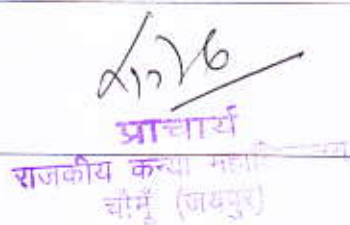 प्राचार्य
राजकीय कन्या
चौमूँ (जयपुर)